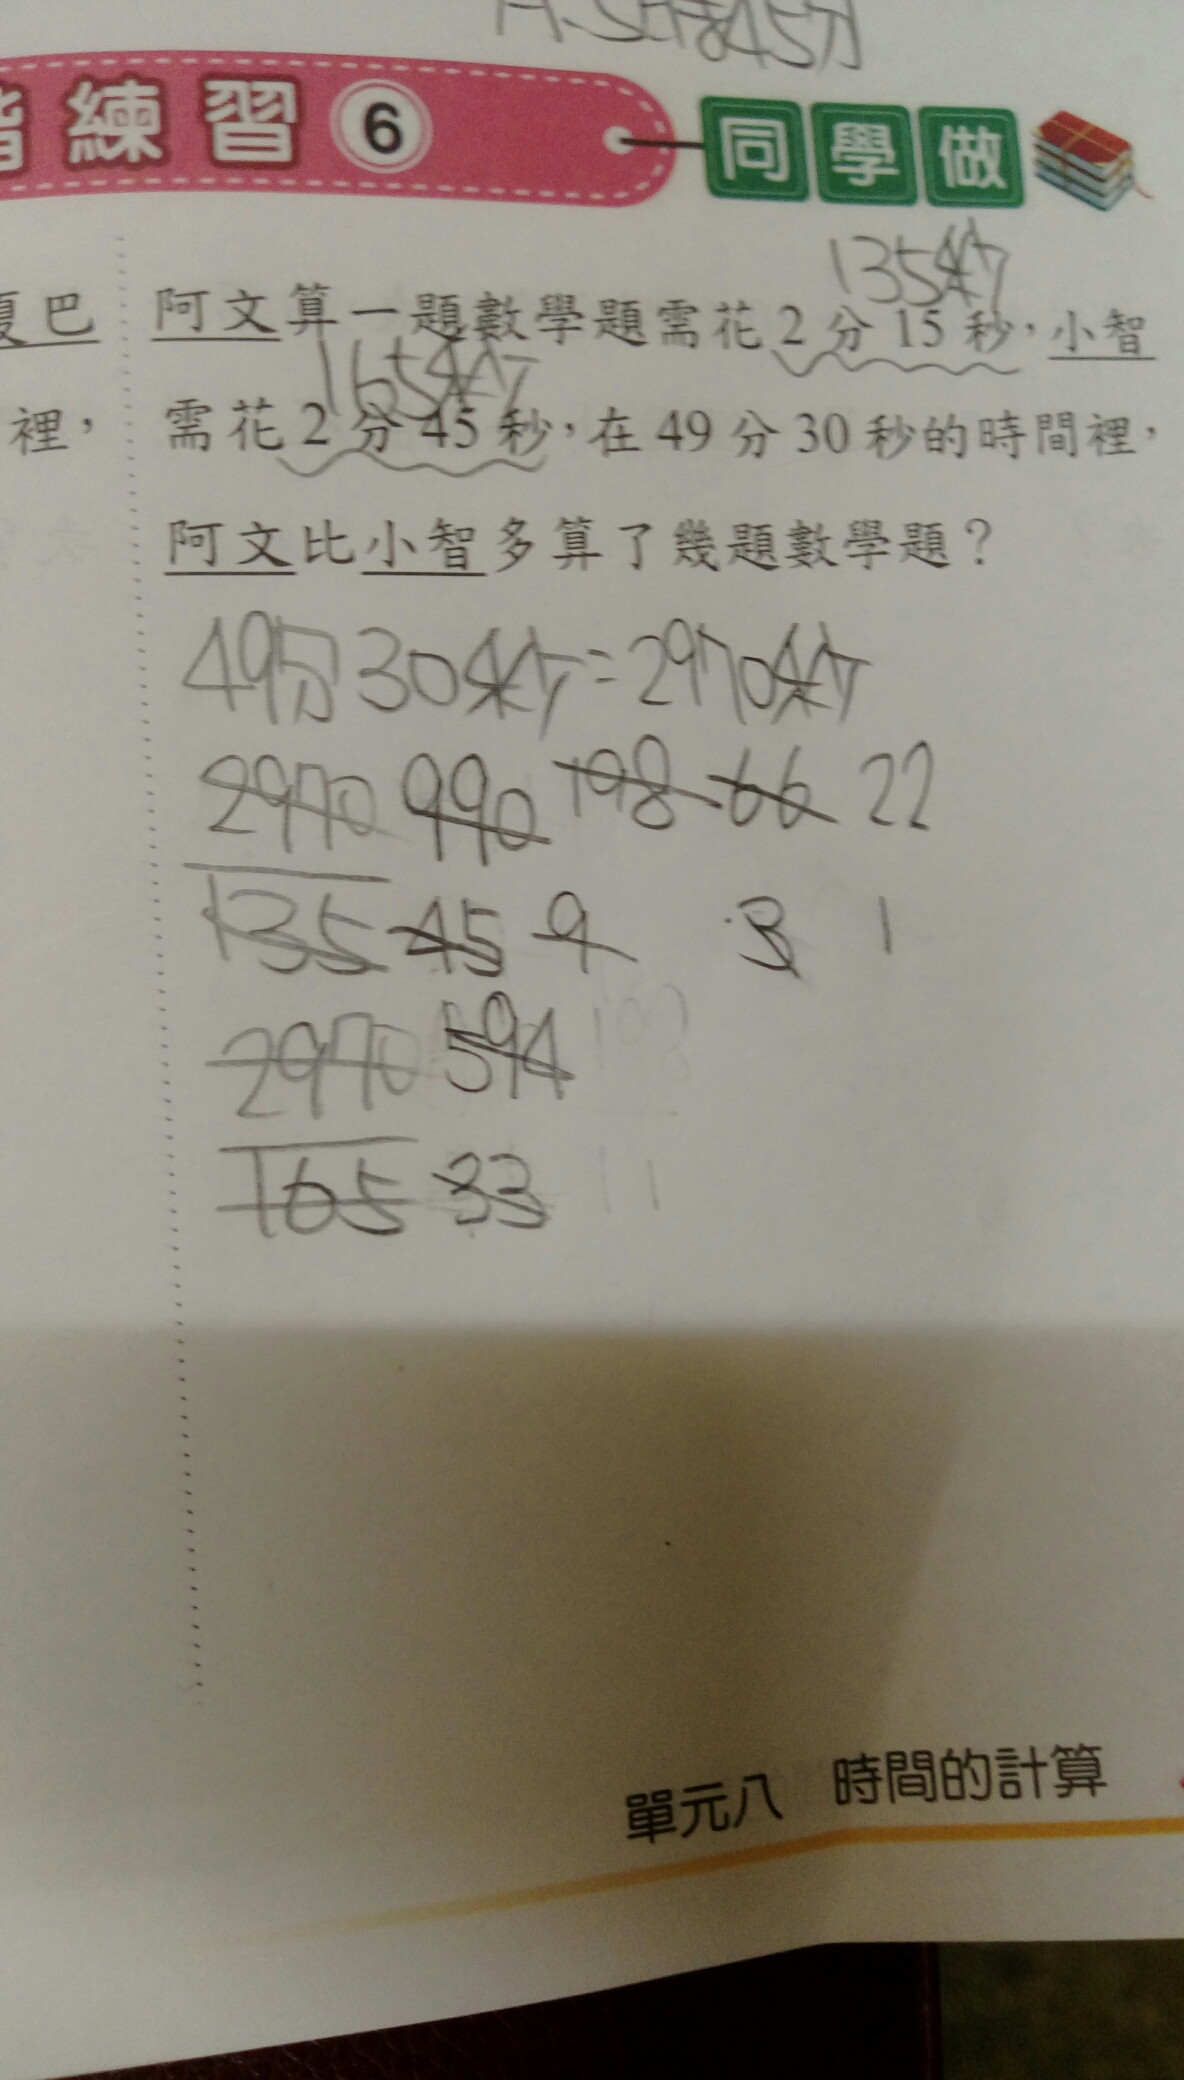 練習 6 同學做
135秒
夏巴
阿文算一題數學題需花 2 分 15 秒，小智
165秒
裡，
需花 2 分 45 秒，在 49 分 30 秒的時間裡，
阿文比小智多算了幾題數學題？
49分30秒=2970秒
2970 990 198 66 22
135 45 9 3 1
2970 594 198
165 33 11
單元八 時間的計算